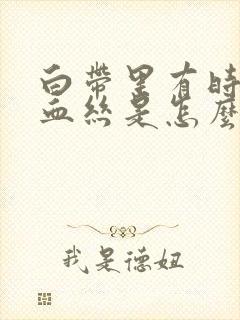 白帶里有時
血絲是怎麼
我是德妞